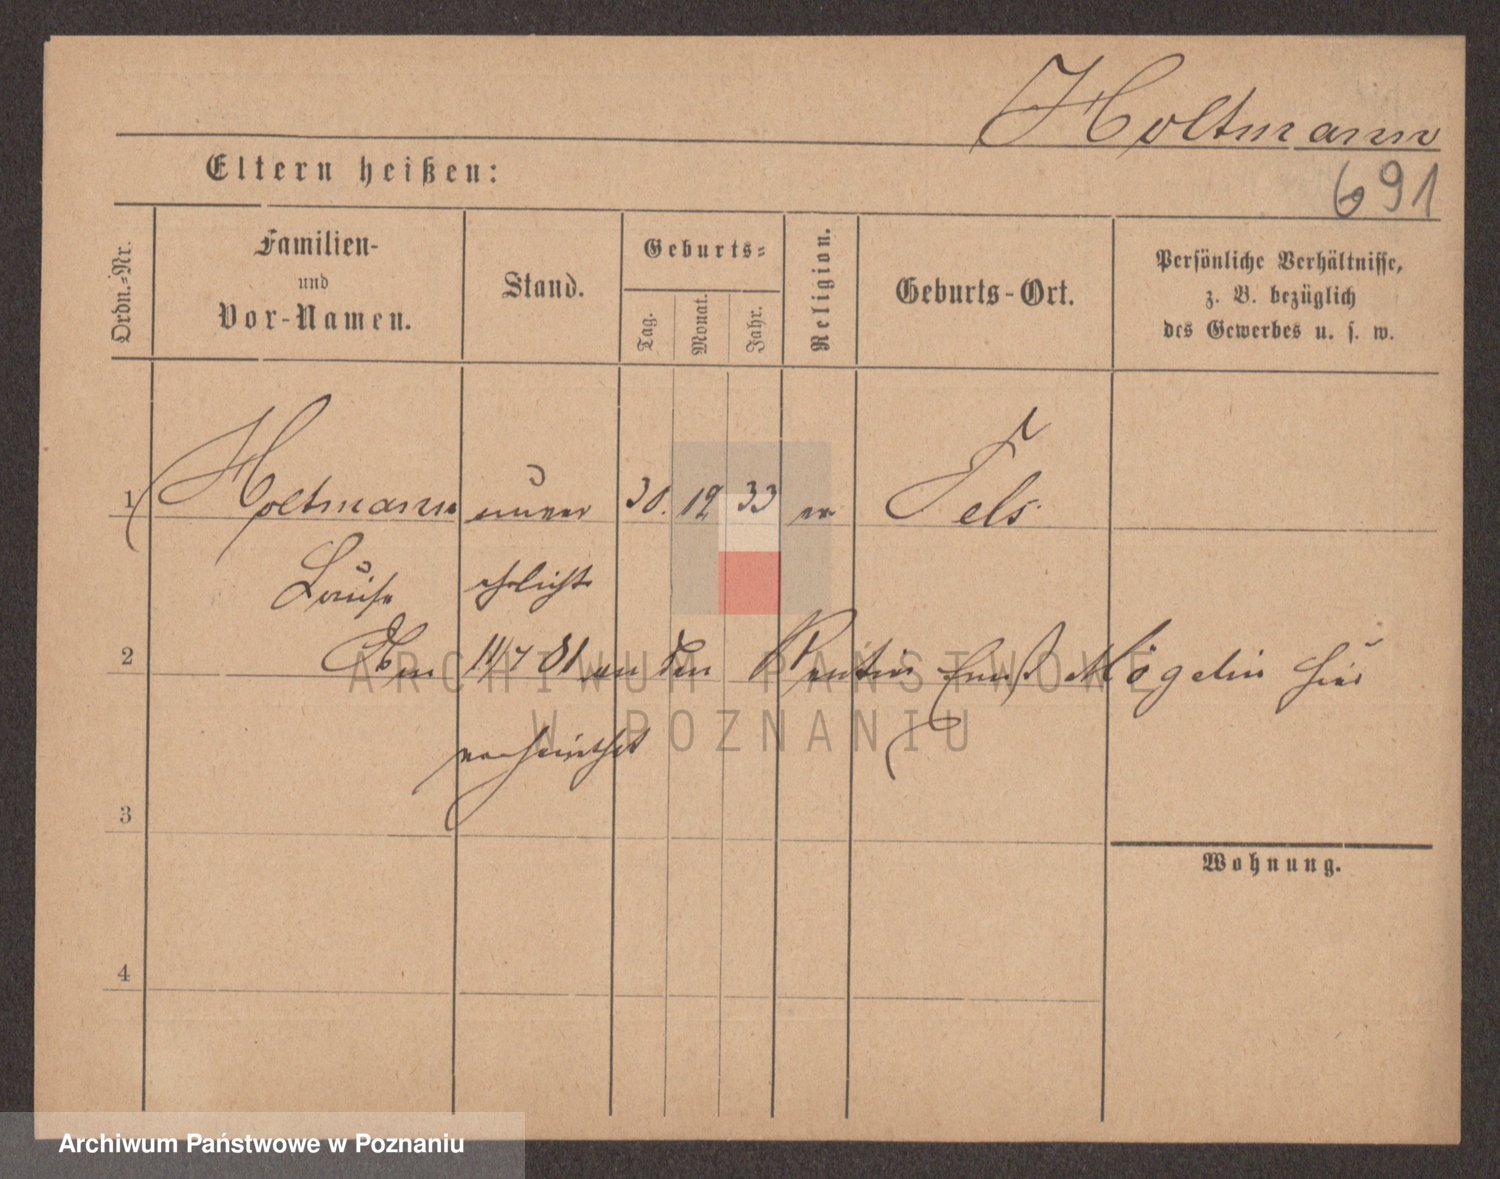 Holtmann
691
Eltern heißen:
Ordn.-Nr.
Familien-
und
Vor-Namen.
Stand.
Geburts-
Tag.
Monat.
Jahr.
Religion.
Geburts-Ort.
Persönliche Verhältnisse,
z. B. bezüglich
des Gewerbes u. s. w.
1 Holtmann unver 30. 12 33 ev Fels
Louise ehlicht
2 Am 11/7 81 an den Rentier Ernst Mögelin hier
verheirathet
3
Wohnung.
4
ARCHIWUM PAŃSTWOWE
W POZNANIU
Archiwum Państwowe w Poznaniu